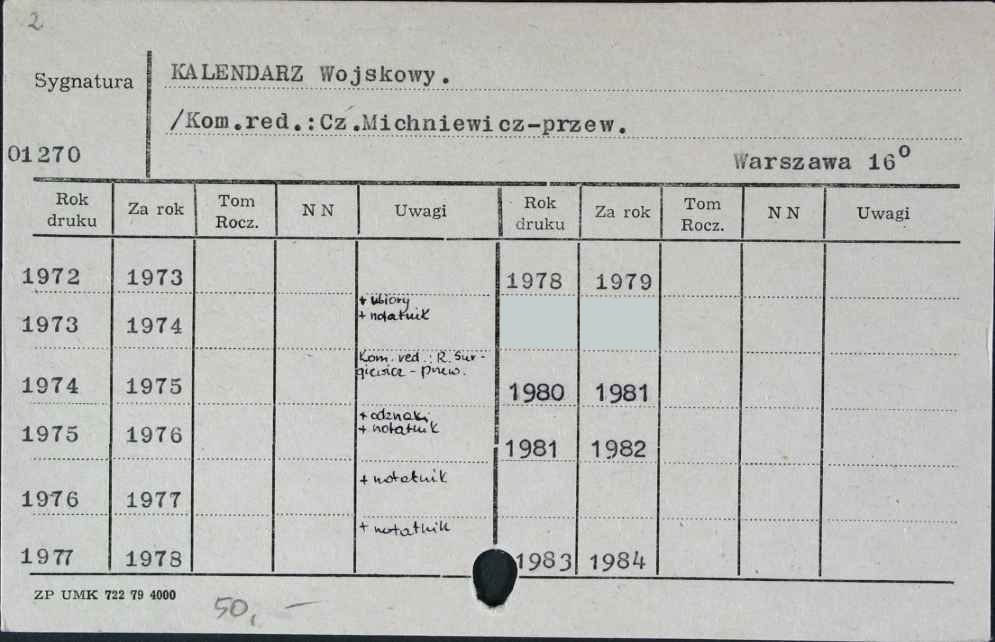 2
Sygnatura
KALENDARZ Wojskowy.
/Kom.red.:Cz.Michniewicz-przew.
01270
Warszawa 16⁰
Rok druku Za rok Tom Rocz. N N Uwagi Rok druku Za rok Tom Rocz. N N Uwagi
1972 1973 1978 1979
+ ubiory
1973 1974 + notatnik
Kom. red.: R. Sur-
1974 1975 - przew. 1980 1981
+ odznaki
1975 1976 + notatnik 1981 1982
1976 1977 + notatnik
1977 1978 + notatnik 1983 1984
ZP UMK 722 79 4000
50,-